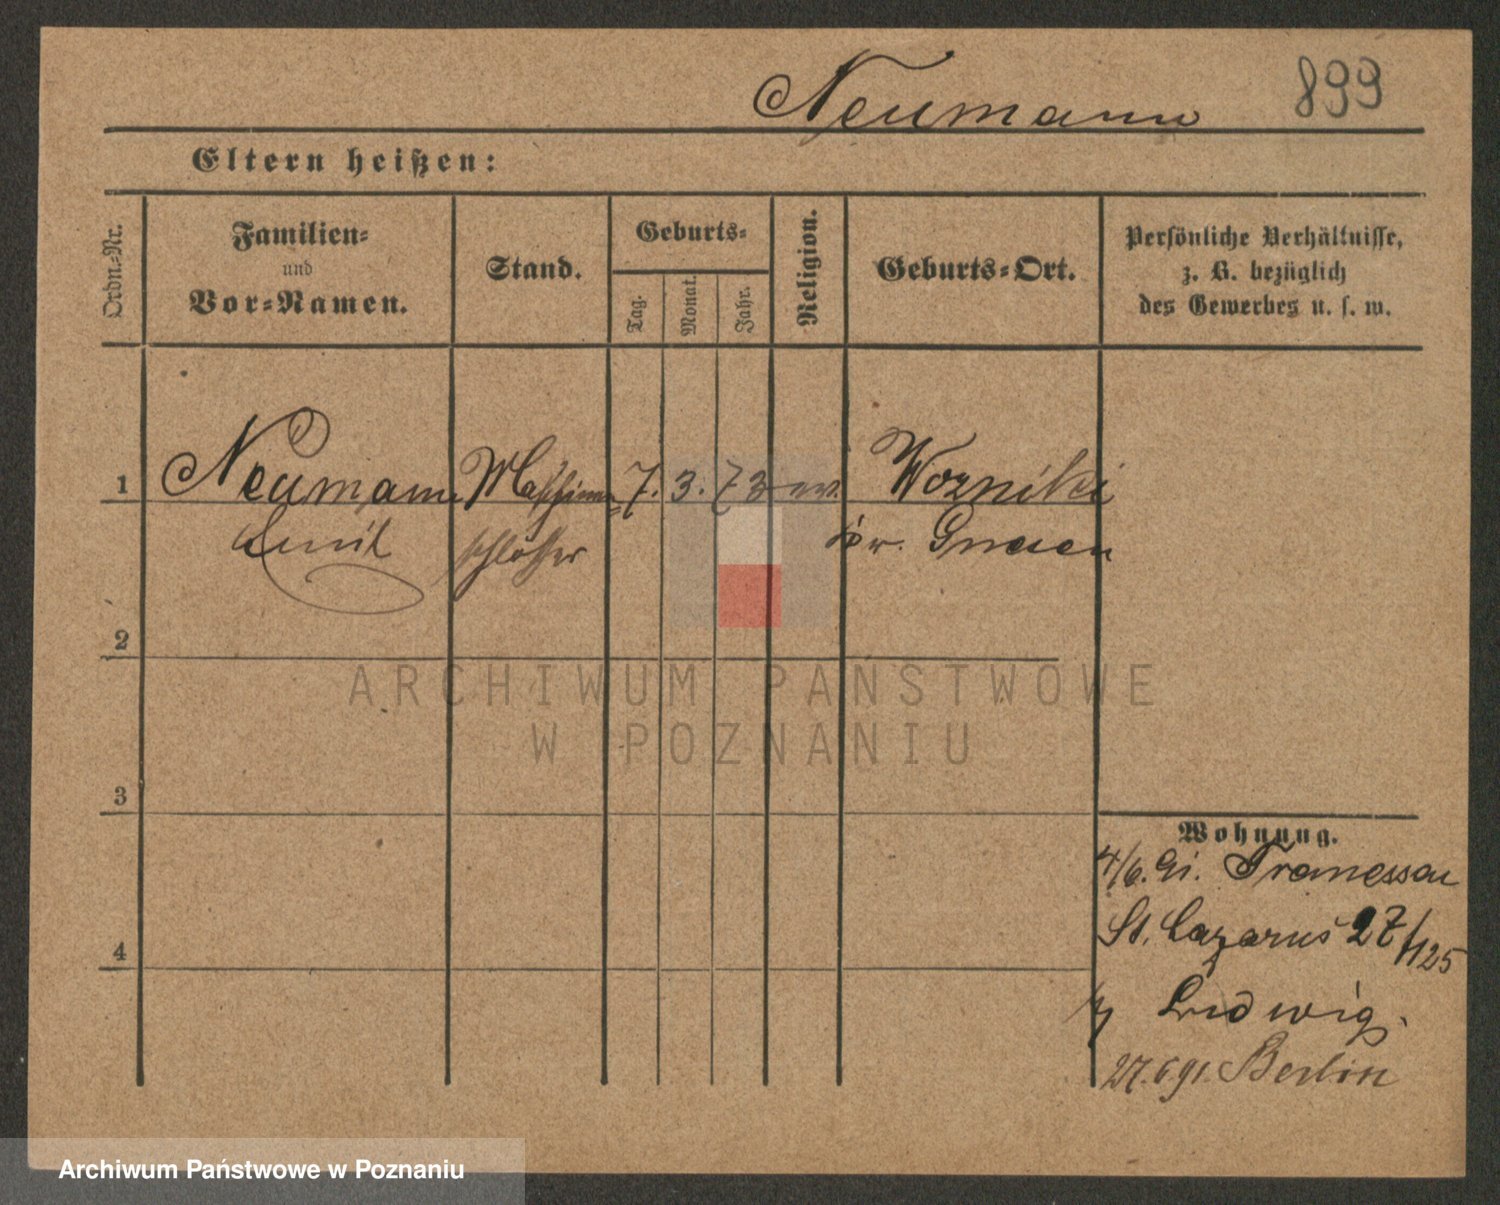 Neumann 899
Eltern heißen:
Ordn.-Nr.
Familien-
und
Vor-Namen.
Stand.
Geburts-
Tag.
Monat.
Jahr.
Religion.
Geburts-Ort.
Persönliche Verhältnisse,
z. B. bezüglich
des Gewerbes u. s. w.
1 Neumann Maschinen- 7. 3. 73 ev. Wozniki
Emil schlosser Kr. Gnesen
2
3
4
Wohnung.
4/6. 91. Tremessen
St. Lazarus 27/125
Ludwig.
27.6.91. Berlin
ARCHIWUM PAŃSTWOWE
W POZNANIU
Archiwum Państwowe w Poznaniu